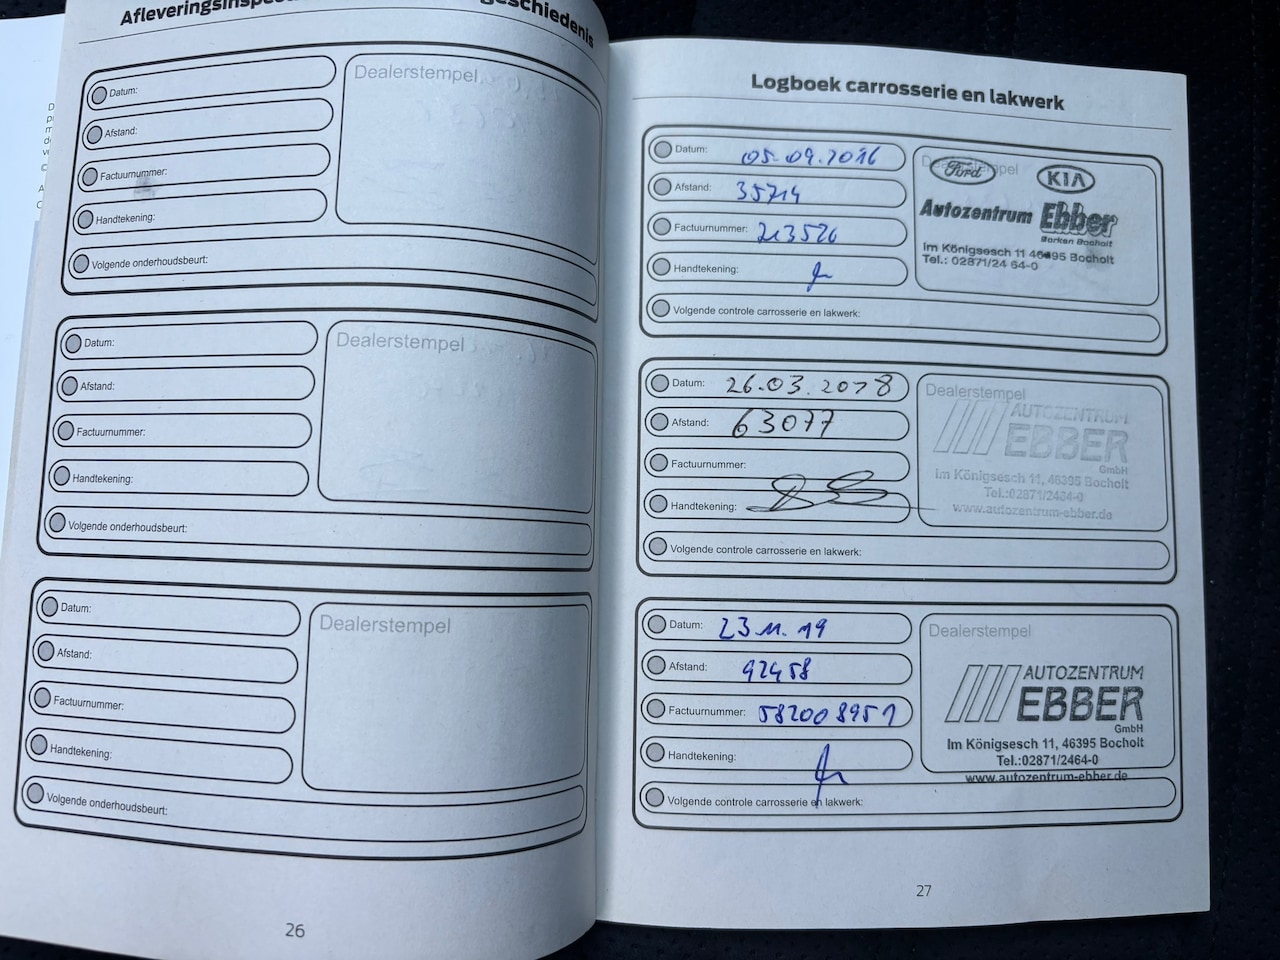 geschiedenis
Datum:
Dealerstempel
Afstand:
Factuurnummer:
Handtekening:
Volgende onderhoudsbeurt:
Datum:
Dealerstempel
Afstand:
Factuurnummer:
Handtekening:
Volgende onderhoudsbeurt:
Datum:
Dealerstempel
Afstand:
Factuurnummer:
Handtekening:
Volgende onderhoudsbeurt:
26
Logboek carrosserie en lakwerk
Datum: 05.09.2016
Afstand: 35714
Factuurnummer: 213526
Handtekening:
Volgende controle carrosserie en lakwerk:
Dealerstempel
Ford KIA
Autozentrum Ebber
Borken Bocholt
Im Königsesch 11 46395 Bocholt
Tel.: 02871/24 64-0
Datum: 26.03.2018
Afstand: 63077
Factuurnummer:
Handtekening:
Volgende controle carrosserie en lakwerk:
Dealerstempel
AUTOZENTRUM
EBBER
GmbH
Im Königsesch 11, 46395 Bocholt
Tel.:02871/2464-0
www.autozentrum-ebber.de
Datum: 23.11.19
Afstand: 92458
Factuurnummer: 582008951
Handtekening:
Volgende controle carrosserie en lakwerk:
Dealerstempel
AUTOZENTRUM
EBBER
GmbH
Im Königsesch 11, 46395 Bocholt
Tel.:02871/2464-0
www.autozentrum-ebber.de
27